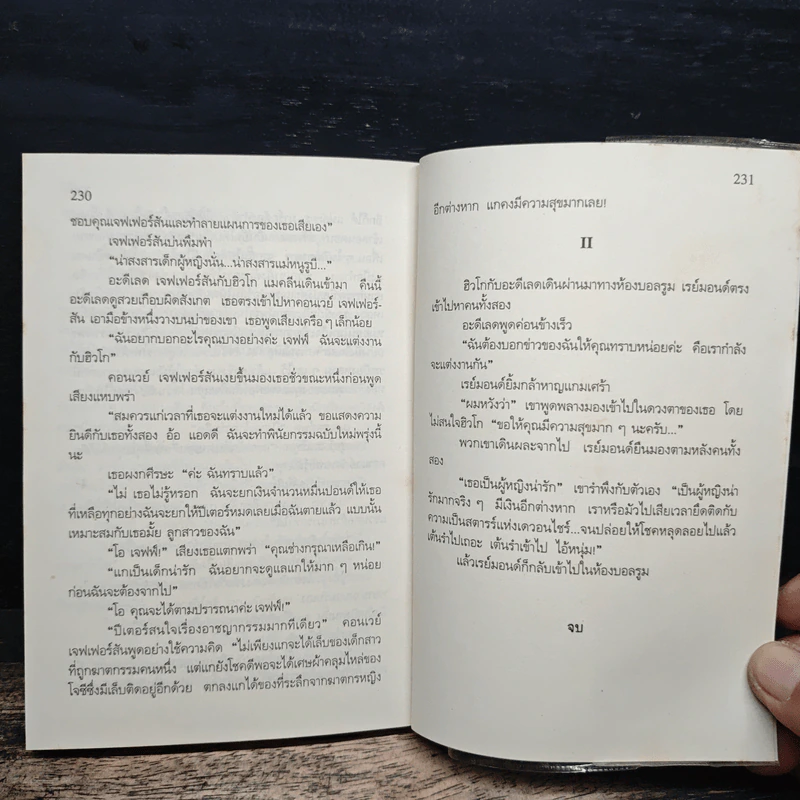 230
ชอบคุณเจฟเฟอร์สันและทำลายแผนการของเธอเสียเอง”
เจฟเฟอร์สันบ่นพึมพำ
“น่าสงสารเด็กผู้หญิงนั่น...น่าสงสารแม่หนูรูบี...”
อะดีเลด เจฟเฟอร์สันกับฮิวโก แมคลีนเดินเข้ามา คืนนี้
อะดีเลดดูสวยเกือบผิดสังเกต เธอตรงเข้าไปหาคอนเวย์ เจฟเฟอร์-
สัน เอามือข้างหนึ่งวางบนบ่าของเขา เธอพูดเสียงเครือ ๆ เล็กน้อย
“ฉันอยากบอกอะไรคุณบางอย่างค่ะ เจฟฟ์ ฉันจะแต่งงาน
กับฮิวโก”
คอนเวย์ เจฟเฟอร์สันเงยขึ้นมองเธอชั่วขณะหนึ่งก่อนพูด
เสียงแหบพร่า
“สมควรแก่เวลาที่เธอจะแต่งงานใหม่ได้แล้ว ขอแสดงความ
ยินดีกับเธอทั้งสอง อ้อ แอดดี ฉันจะทำพินัยกรรมฉบับใหม่พรุ่งนี้
นะ
เธอผงกศีรษะ “ค่ะ ฉันทราบแล้ว”
“ไม่ เธอไม่รู้หรอก ฉันจะยกเงินจำนวนหมื่นปอนด์ให้เธอ
ที่เหลือทุกอย่างฉันจะยกให้ปีเตอร์หมดเลยเมื่อฉันตายแล้ว แบบนั้น
เหมาะสมกับเธอมั้ย ลูกสาวของฉัน”
“โอ เจฟฟ์!” เสียงเธอแตกพร่า “คุณช่างกรุณาเหลือเกิน!”
“แกเป็นเด็กน่ารัก ฉันอยากจะดูแลแกให้มาก ๆ หน่อย
ก่อนฉันจะต้องจากไป”
“โอ คุณจะได้ตามปรารถนาค่ะ เจฟฟ์!”
“ปีเตอร์สนใจเรื่องอาชญากรรมมากทีเดียว” คอนเวย์
เจฟเฟอร์สันพูดอย่างใช้ความคิด “ไม่เพียงแกจะได้เล็บของเด็กสาว
ที่ถูกฆาตกรรมคนหนึ่ง แต่แกยังโชคดีพอจะได้เศษผ้าคลุมไหล่ของ
โจซีซึ่งมีเล็บติดอยู่อีกด้วย ตกลงแกได้ของที่ระลึกจากฆาตกรหญิง
231
อีกต่างหาก แกคงมีความสุขมากเลย!
II
ฮิวโกกับอะดีเลดเดินผ่านมาทางห้องบอลรูม เรย์มอนด์ตรง
เข้าไปหาคนทั้งสอง
อะดีเลดพูดค่อนข้างเร็ว
“ฉันต้องบอกข่าวของฉันให้คุณทราบหน่อยค่ะ คือเรากำลัง
จะแต่งงานกัน”
เรย์มอนด์ยิ้มกล้าหาญแกมเศร้า
“ผมหวังว่า” เขาพูดพลางมองเข้าไปในดวงตาของเธอ โดย
ไม่สนใจฮิวโก “ขอให้คุณมีความสุขมาก ๆ นะครับ...”
พวกเขาเดินผละจากไป เรย์มอนด์ยืนมองตามหลังคนทั้ง
สอง
“เธอเป็นผู้หญิงน่ารัก” เขารำพึงกับตัวเอง “เป็นผู้หญิงน่า
รักมากจริง ๆ มีเงินอีกต่างหาก เราหรือมัวไปเสียเวลายึดติดกับ
ความเป็นสตารร์แห่งเดวอนไชร์...จนปล่อยให้โชคหลุดลอยไปแล้ว
เต้นรำไปเถอะ เต้นรำเข้าไป ไอ้หนุ่ม!”
แล้วเรย์มอนด์ก็กลับเข้าไปในห้องบอลรูม
จบ